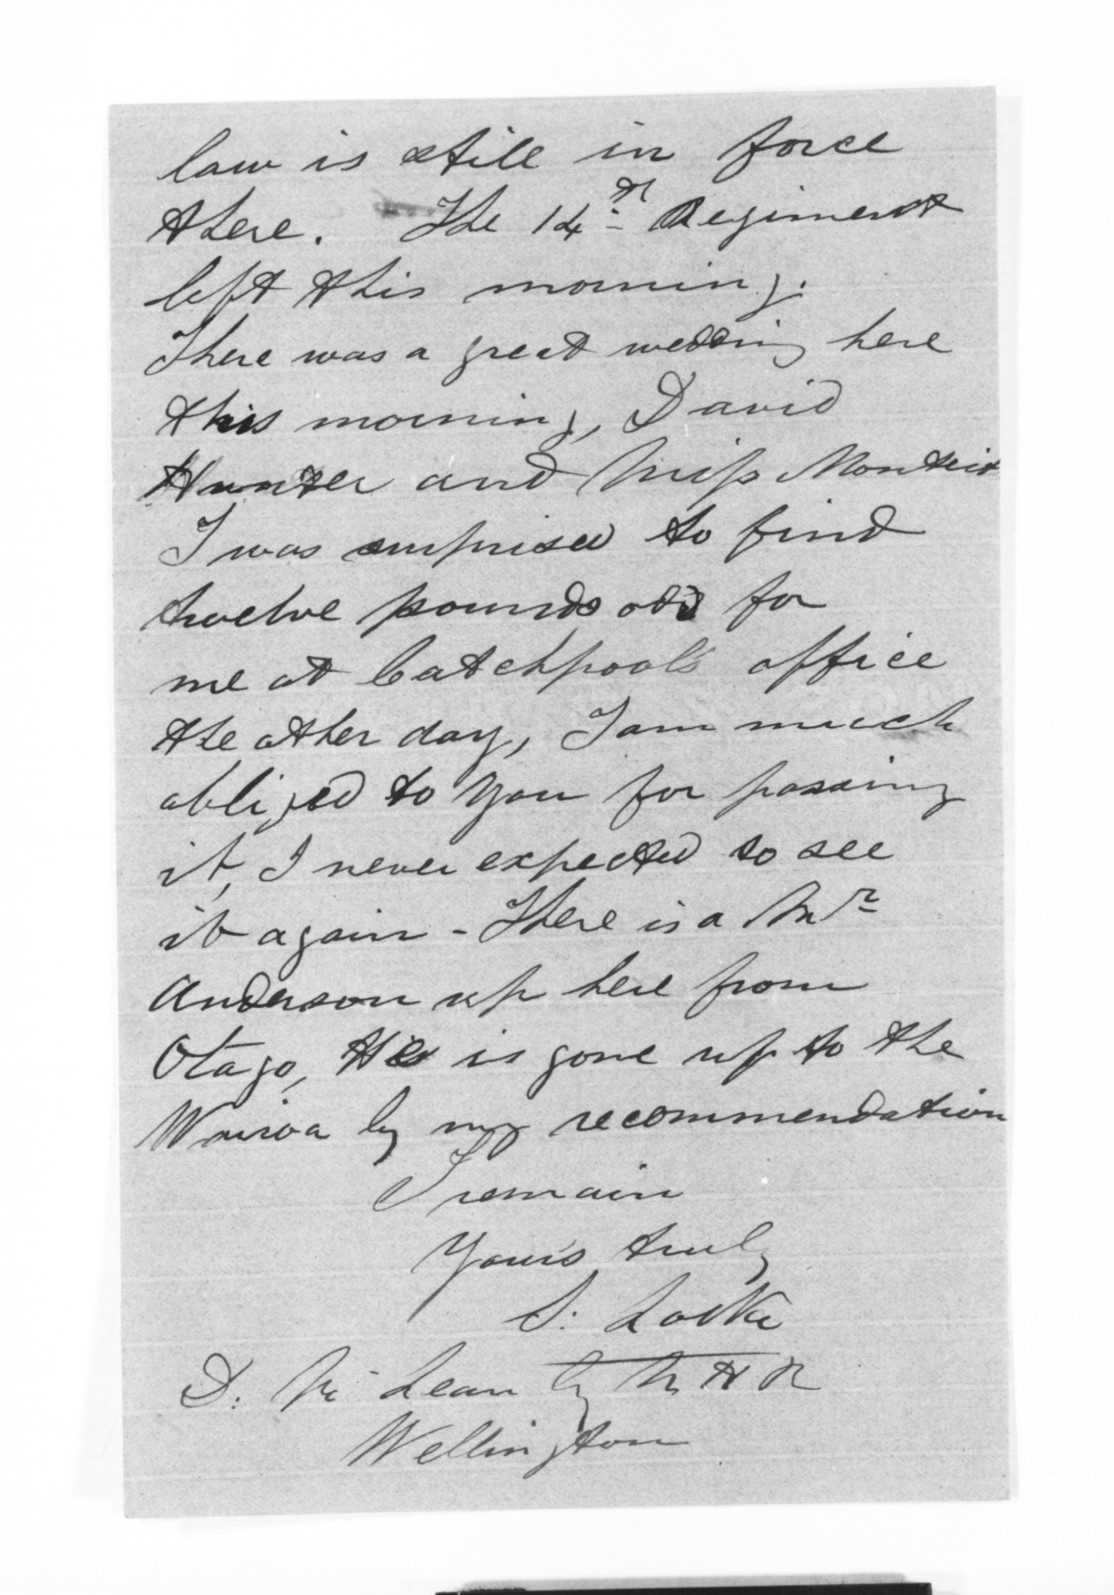 law is still in force
there. The 14th Regiment
left this morning.
There was a great wedding here
this morning, David
Hunter and Miss Monteit
I was surprised to find
twelve pounds odd for
me at Catchpools office
the other day, I am much
obliged to you for passing
it, I never expected to see
it again - There is a Mr
Anderson up here from
Otago, He is gone up to the
Wairoa by my recommendation
I remain
Yours truly
S. Locke
D. McLean Esq M H R
Wellington